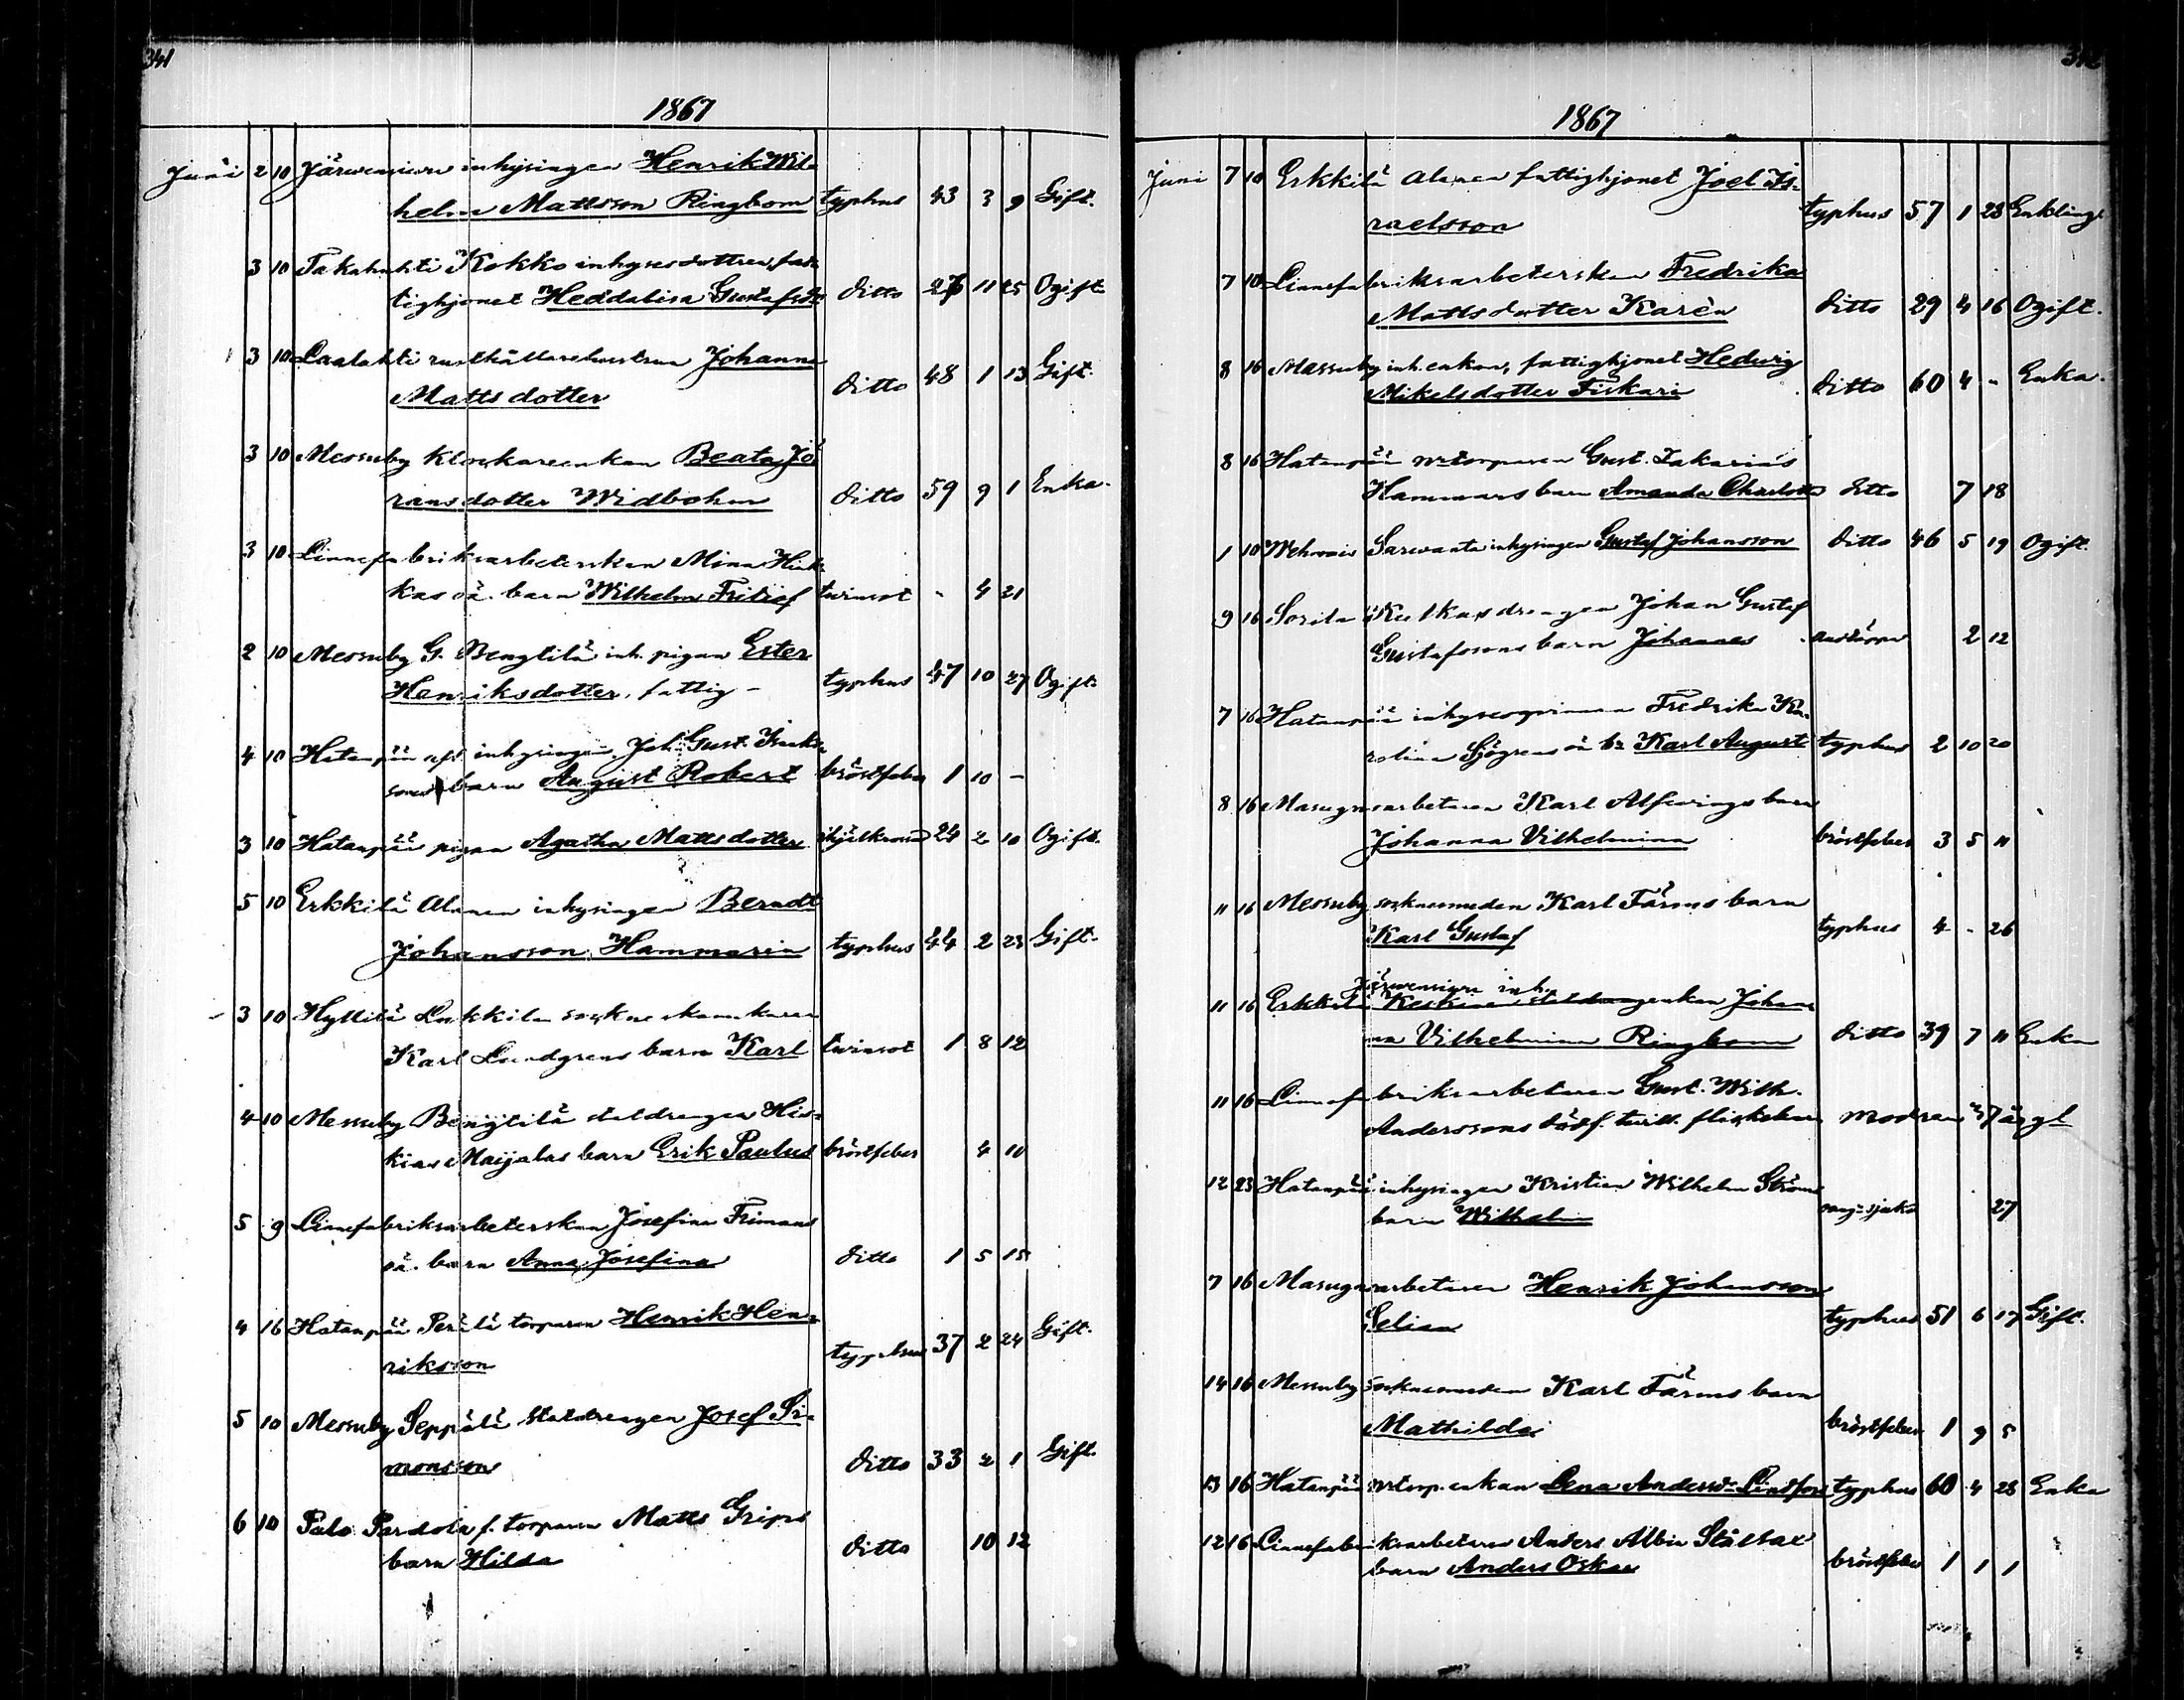 341
1867
Juni 2 10 Järwensiwu inhysingen Henrik Wil-
helm Mattsson Ringbom typhus 43 3 9 Gift.
3 10 Takahuhti Kokko inhysesdottren, fat-
tighjonet Heddalisa Gustafsdr ditto 27 11 25 Ogift
3 10 Laalahti rusthållarehustrun Johanna
Mattsdotter ditto 48 1 13 Gift.
3 10 Messuby klockareenkan Beata Jö-
ransdotter Widbohm ditto 59 9 1 Enka.
3 10 Linnefabriksarbeterskan Mina
kas oä. barn Wilhelm Fritiof twinsot - 4 21
2 10 Messuby G. Bengtilä inh. pigan Ester
Henriksdotter, fattig - typhus 47 10 27 Ogift.
4 10 Hatanpää afs. inhysingen Joh. Gust. Isaks-
sons barn August Robert bröstfeber 1 10 -
3 10 Hatanpää pigan Agatha Mattsdotter 24 2 10 Ogift.
5 10 Erkkilä Alanen inhysingen Berndt
Johansson Hammarin typhus 44 2 23 Gift.
3 10 Hyllilä Lukkila sockneskomakaren
Karl Lundgrens barn Karl twinsot 1 8 12
4 10 Messuby Bengtilä statdrengen His-
kias Maijalas barn Erik Paulus bröstfeber 4 10
5 9 Linnefabriksarbeterskan Josefina Frimans
oä. barn Anna Josefina ditto 1 5 15
4 16 Hatanpää Perälä torparen Henrik Hen-
riksson typhus 37 2 24 Gift.
5 10 Messuby Seppälä statdrengen Josef Si-
monsson ditto 33 2 1 Gift.
6 10 Palo Pardola f. torparen Matts Grips
barn Hilda ditto 10 12
1867
Juni 7 10 Erkkilä Alanen fattighjonet Joel Is-
raelsson typhus 57 1 23 Enkling
7 10 Linnefabriksarbeterskan Fredrika
Mattsdotter Karèn ditto 29 4 16 Ogift.
8 16 Messuby inh. enkan, fattighjonet Hedwig
Mikelsdotter Fiskari ditto 60 4 - Enka.
8 16 Hatanpää mtorparen Gust. Zakarias
Hammars barn Amanda Charlotta ditto 7 18
1 10 Wehmais Sarwanta inhysingen Gustaf Johansson ditto 46 5 19 Ogift.
9 16 Sorila drengen Johan Gustaf
Gustafssons barn Johannes 2 12
7 16 Hatanpää inhysespigan Fredrika Ka-
rolina Sjögrens oä br Karl August typhus 2 10 20
8 16 Masugnsarbetaren Karl Alfwings barn
Johanna Vilhelmina bröstfeber 3 5 11
11 16 Messuby socknesmeden Karl Färms barn
Karl Gustaf typhus 4 - 26
Järwensiwu inh.
11 16 Erkkilä Keskinen statdrengenkan Johan-
na Vilhelmina Ringbom ditto 39 7 11 Enka
11 16 Linnefabriksarbetaren Gust. Wilh.
Anderssons dödf. twill. flickebarn modran 37 år gl
12 23 Hatanpää inhysingen Kristian Wilhelm Ströms
barn Wilhelm 27
7 16 Masugnsarbetaren Henrik Johansson
Selin typhus 51 6 17 Gift.
14 16 Messuby socknesmeden Karl Färms barn
Mathilda bröstfeber 1 9 5
13 16 Hatanpää mtorp. enkan Lena Andersdr Lindfors typhus 60 4 28 Enka
12 16 Linnefabriksarbetaren Anders Albin Ståltat
barn Anders Oskar bröstfeber 1 1 1